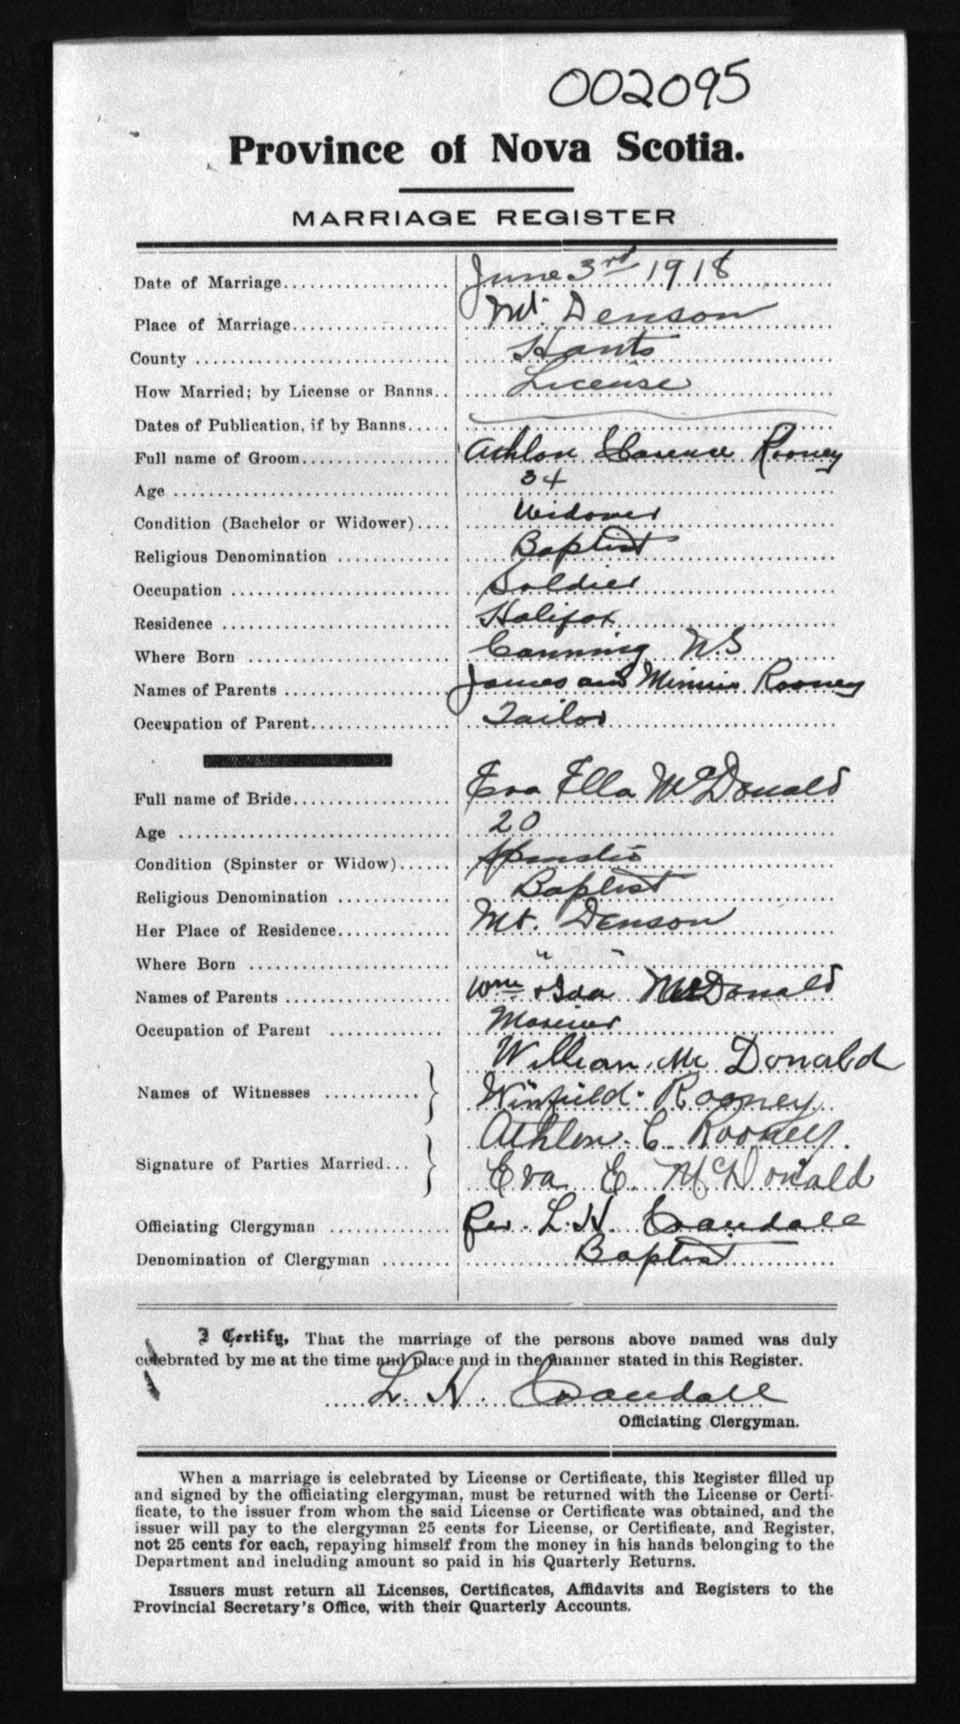 002095
Province of Nova Scotia.
MARRIAGE REGISTER
Date of Marriage.................... June 3rd 1918
Place of Marriage.................. Mt. Denson
County ............................. Hants
How Married; by License or Banns.. License
Dates of Publication, if by Banns.....
Full name of Groom................. Athlon Clarence Rooney
Age ................................ 34
Condition (Bachelor or Widower).... Widower
Religious Denomination ............. Baptist
Occupation ......................... Soldier
Residence .......................... Halifax
Where Born ........................ Canning N.S
Names of Parents ................... James and Minnie Rooney
Occupation of Parent................ Tailor
Full name of Bride.................. Eva Ella McDonald
Age ................................ 20
Condition (Spinster or Widow)...... Spinster
Religious Denomination ............. Baptist
Her Place of Residence............. Mt. Denson
Where Born ........................ " "
Names of Parents ................... Wm & Ida McDonald
Occupation of Parent .............. Mariner
William Mc Donald
Names of Witnesses ........... } Winfield Rooney
Athlon. C. Rooney.
Signature of Parties Married... } Eva E. McDonald
Officiating Clergyman .............. Rev. L. H. Crandall
Denomination of Clergyman ........ Baptist
I Certify, That the marriage of the persons above named was duly
celebrated by me at the time and place and in the manner stated in this Register.
L. H. Crandall
Officiating Clergyman.
When a marriage is celebrated by License or Certificate, this Register filled up
and signed by the officiating clergyman, must be returned with the License or Certi-
ficate, to the issuer from whom the said License or Certificate was obtained, and the
issuer will pay to the clergyman 25 cents for License, or Certificate, and Register,
not 25 cents for each, repaying himself from the money in his hands belonging to the
Department and including amount so paid in his Quarterly Returns.
Issuers must return all Licenses, Certificates, Affidavits and Registers to the
Provincial Secretary's Office, with their Quarterly Accounts.